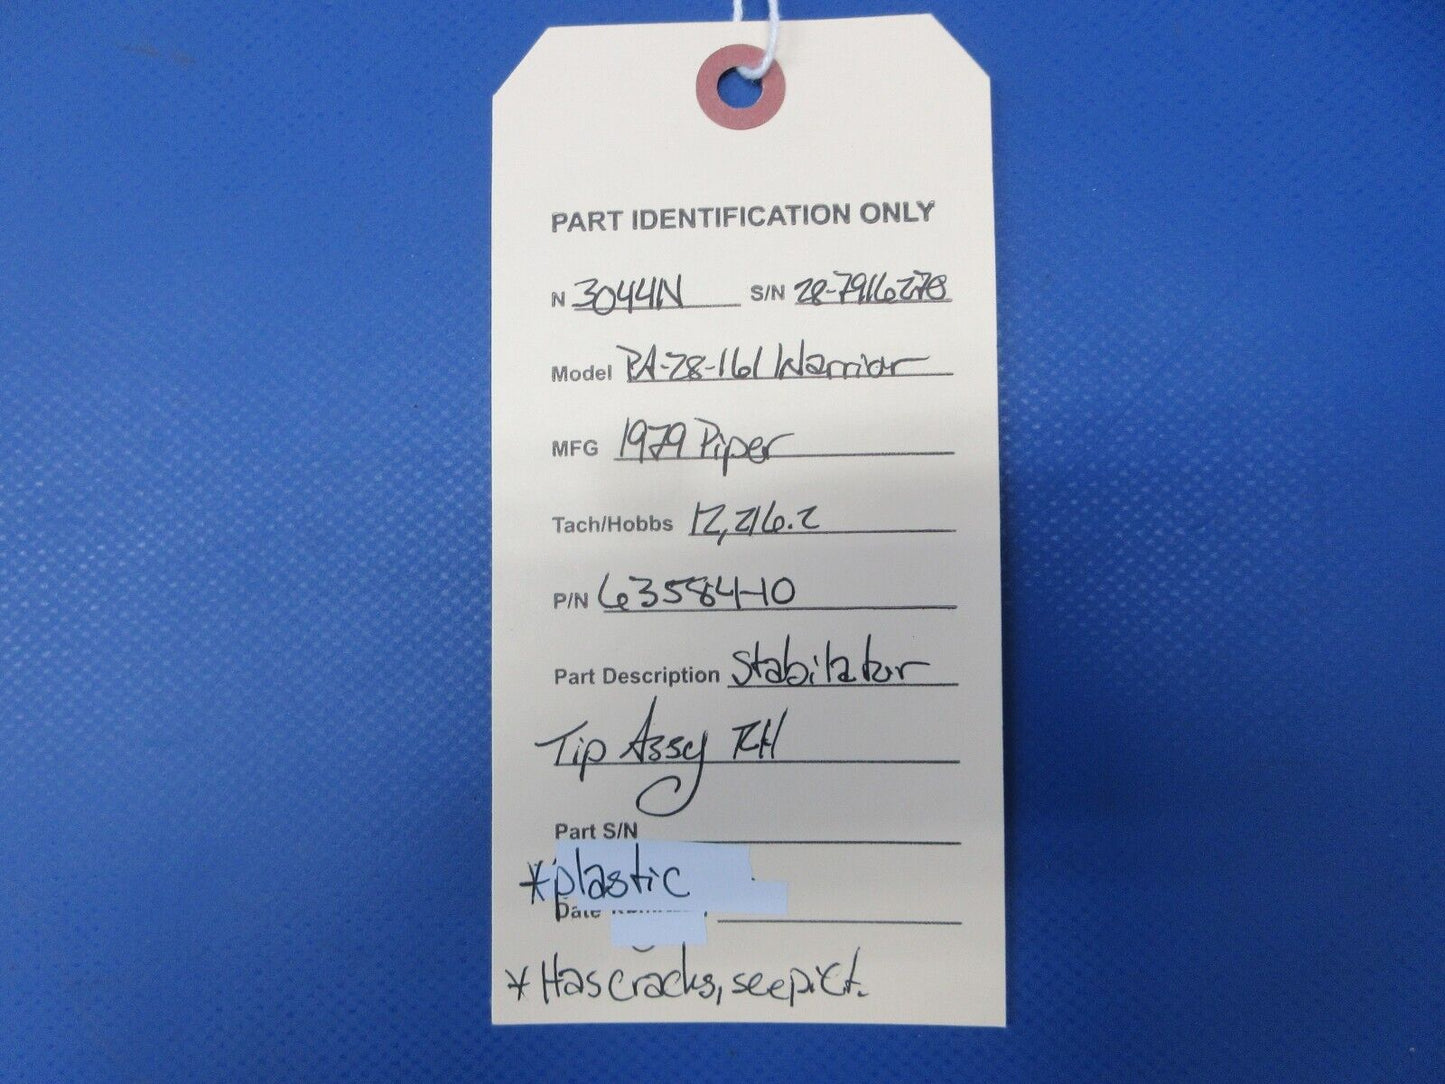 PART IDENTIFICATION ONLY
N 3044N S/N 28-7916278
Model PA-28-161 Warrior
MFG 1979 Piper
Tach/Hobbs 12,216.2
P/N 63584-10
Part Description Stabilator
Tip Assy RH
Part S/N
*plastic
Date
*Has cracks, see pict.